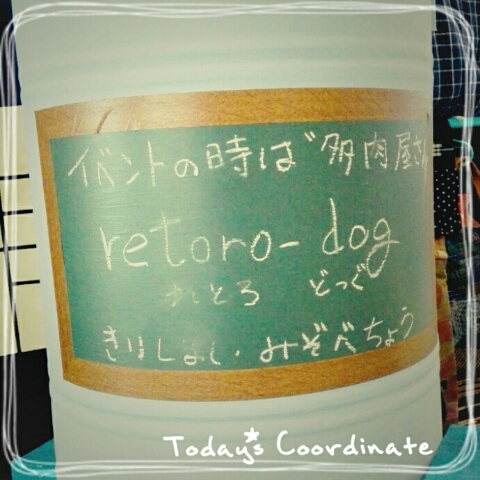 イベントの時は"多肉屋さん
retoro-dog
れとろ どっぐ
きりしまし、みぞべちょう
Today's Coordinate